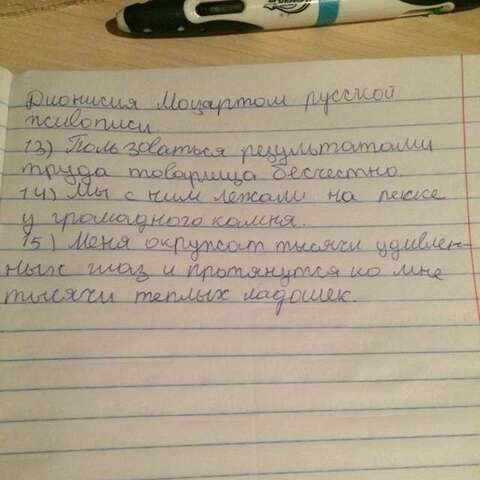 Дионисия Моцартом русской
живописи.
13) Пользоваться результатами
труда товарища бесчестно.
14) Мы с ним лежали на песке
у громадного камня.
15) Меня окружат тысячи удивлен-
ных глаз и протянутся ко мне
тысячи теплых ладошек.